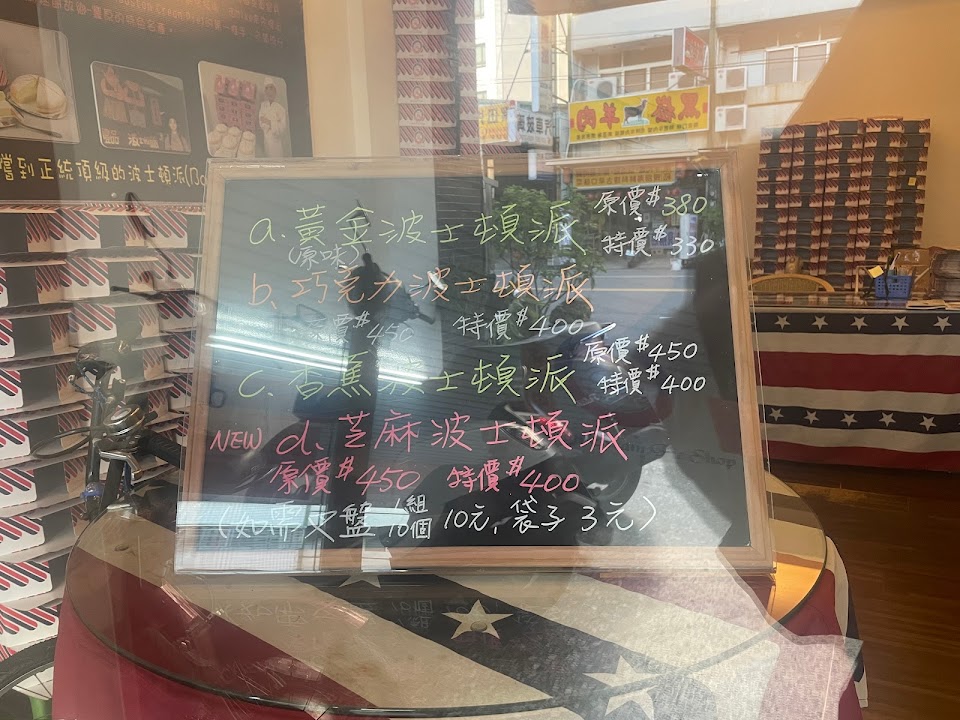 嚐到正統頂級的波士頓派(Bo
黑嶽羊肉
汽車玻璃
a. 黃金波士頓派 原價$380
(原味) 特價$330
b. 巧克力波士頓派
原價$450 特價$400
c. 香蕉波士頓派 原價$450
特價$400
NEW d. 芝麻波士頓派
原價$450 特價$400
(如需叉盤 1組10個 10元, 袋子 3元)